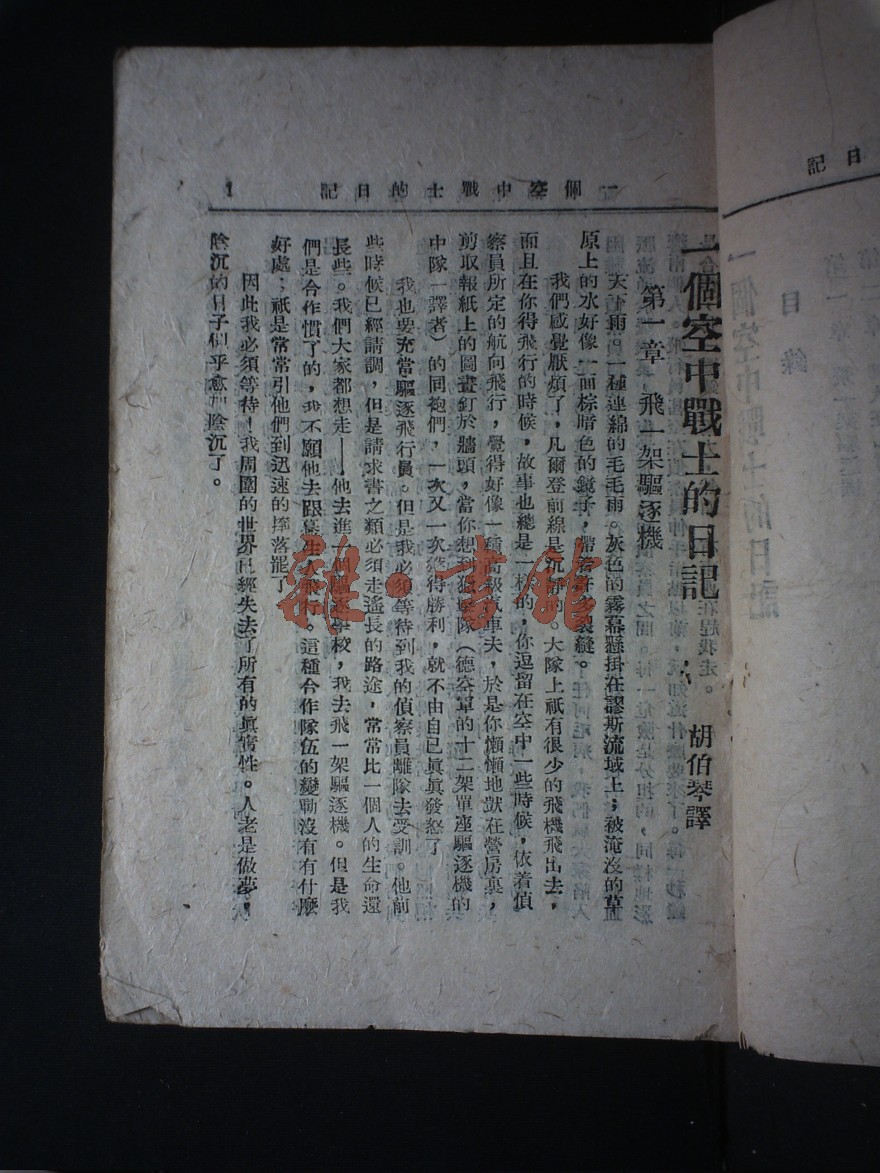 一個空中戰士的日記
1
一個空中戰士的日記
胡伯琴譯
第一章 飛一架驅逐機
天下雨。一種連綿的毛毛雨。灰色的霧幕懸掛在謬斯流域上；被淹沒的草
原上的水好像一面棕暗色的鏡子，帶着許多裂縫。
我們感覺厭煩了，凡爾登前線是沉靜的。大隊上祇有很少的飛機飛出去，
而且在你得飛行的時候，故事也總是一樣的，你逗留在空中一些時候，依着偵
察員所定的航向飛行，覺得好像一種高級汽車夫，於是你懶懶地獃在營房裏，
剪取報紙上的圖畫釘於牆頭，當你想到獵擊隊（德空軍的十二架單座驅逐機的
中隊—譯者）的同袍們，一次又一次獲得勝利，就不由自已眞眞發怒了
我也要充當驅逐飛行員。但是我必須等待到我的偵察員離隊去受訓。他前
些時候已經請調，但是請求書之類必須走遙長的路途，常常比一個人的生命還
長些。我們大家都想走——他去進一個驅逐學校，我去飛一架驅逐機。但是我
們是合作慣了的，我不願他去跟陌生人飛行。這種合作隊伍的變動沒有有什麼
好處；祇是常常引他們到迅速的摔落罷了
因此我必須等待！我周圍的世界已經失去了所有的眞實性。人老是做夢，
陰沉的日子似乎愈加陰沉了。
日記
目錄
一個空中戰士的日記
雜·书馆